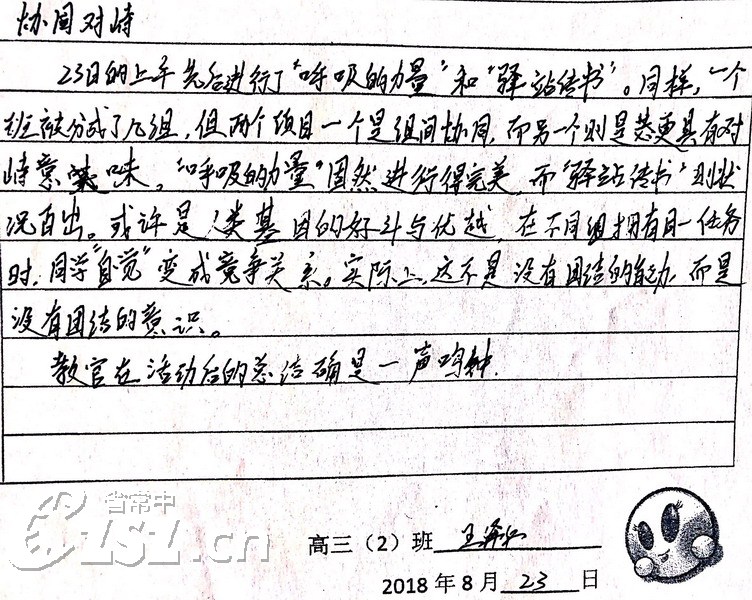 协同对峙
23日的上午先后进行了“呼吸的力量”和“驿站传书”。同样,一个
班被分成了几组,但两个项目一个是组间协同,而另一个则是更具有对
峙意味。“呼吸的力量”固然进行得完美,而“驿站传书”则状
况百出。或许是人类基因的好斗与优越,在不同组拥有同一任务
时,同学“自觉”变成竞争关系。实际上,这不是没有团结的能力,而是
没有团结的意识。
教官在活动后的总结确是一声鸣钟.
省常中
CZSLSZ.cn
高三(2)班 王
2018年8月23日